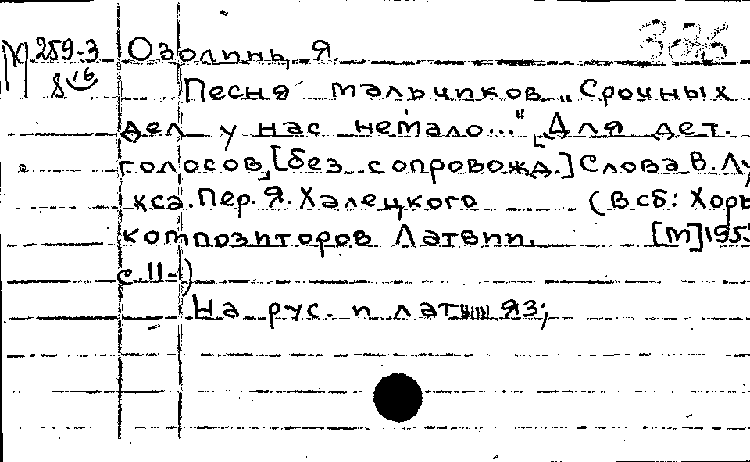 М 259-3 Озолинь, Я
8 16 Песня мальчиков „Срочных
дел у нас немало..." [Для дет.
голосов,] [без сопровожд.] Слова В. Лу
кса. Пер. Я. Халецкого (В сб: Хоры
композиторов Латвии. [М] 195
с. 11-)
На рус. и лат яз;